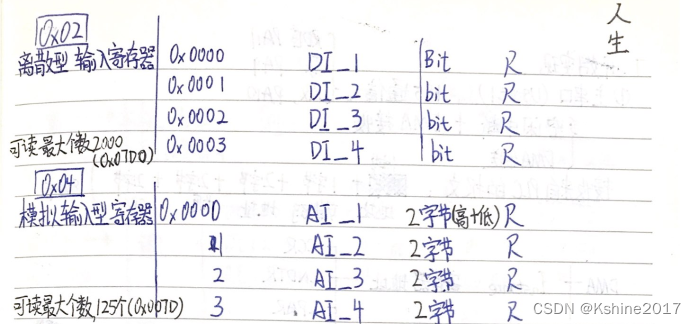 人
生
0x02
离散型输入寄存器 0x0000 DI_1 Bit R
0x0001 DI_2 bit R
0x0002 DI_3 bit R
可读最大个数2000 0x0003 DI_4 bit R
(0x07D0)
0x04
模拟输入型寄存器 0x0000 AI_1 2字节(高+低) R
1 AI_2 2字节 R
2 AI_3 2字节 R
可读最大个数,125个(0x007D) 3 AI_4 2字节 R
CSDN @Kshine2017